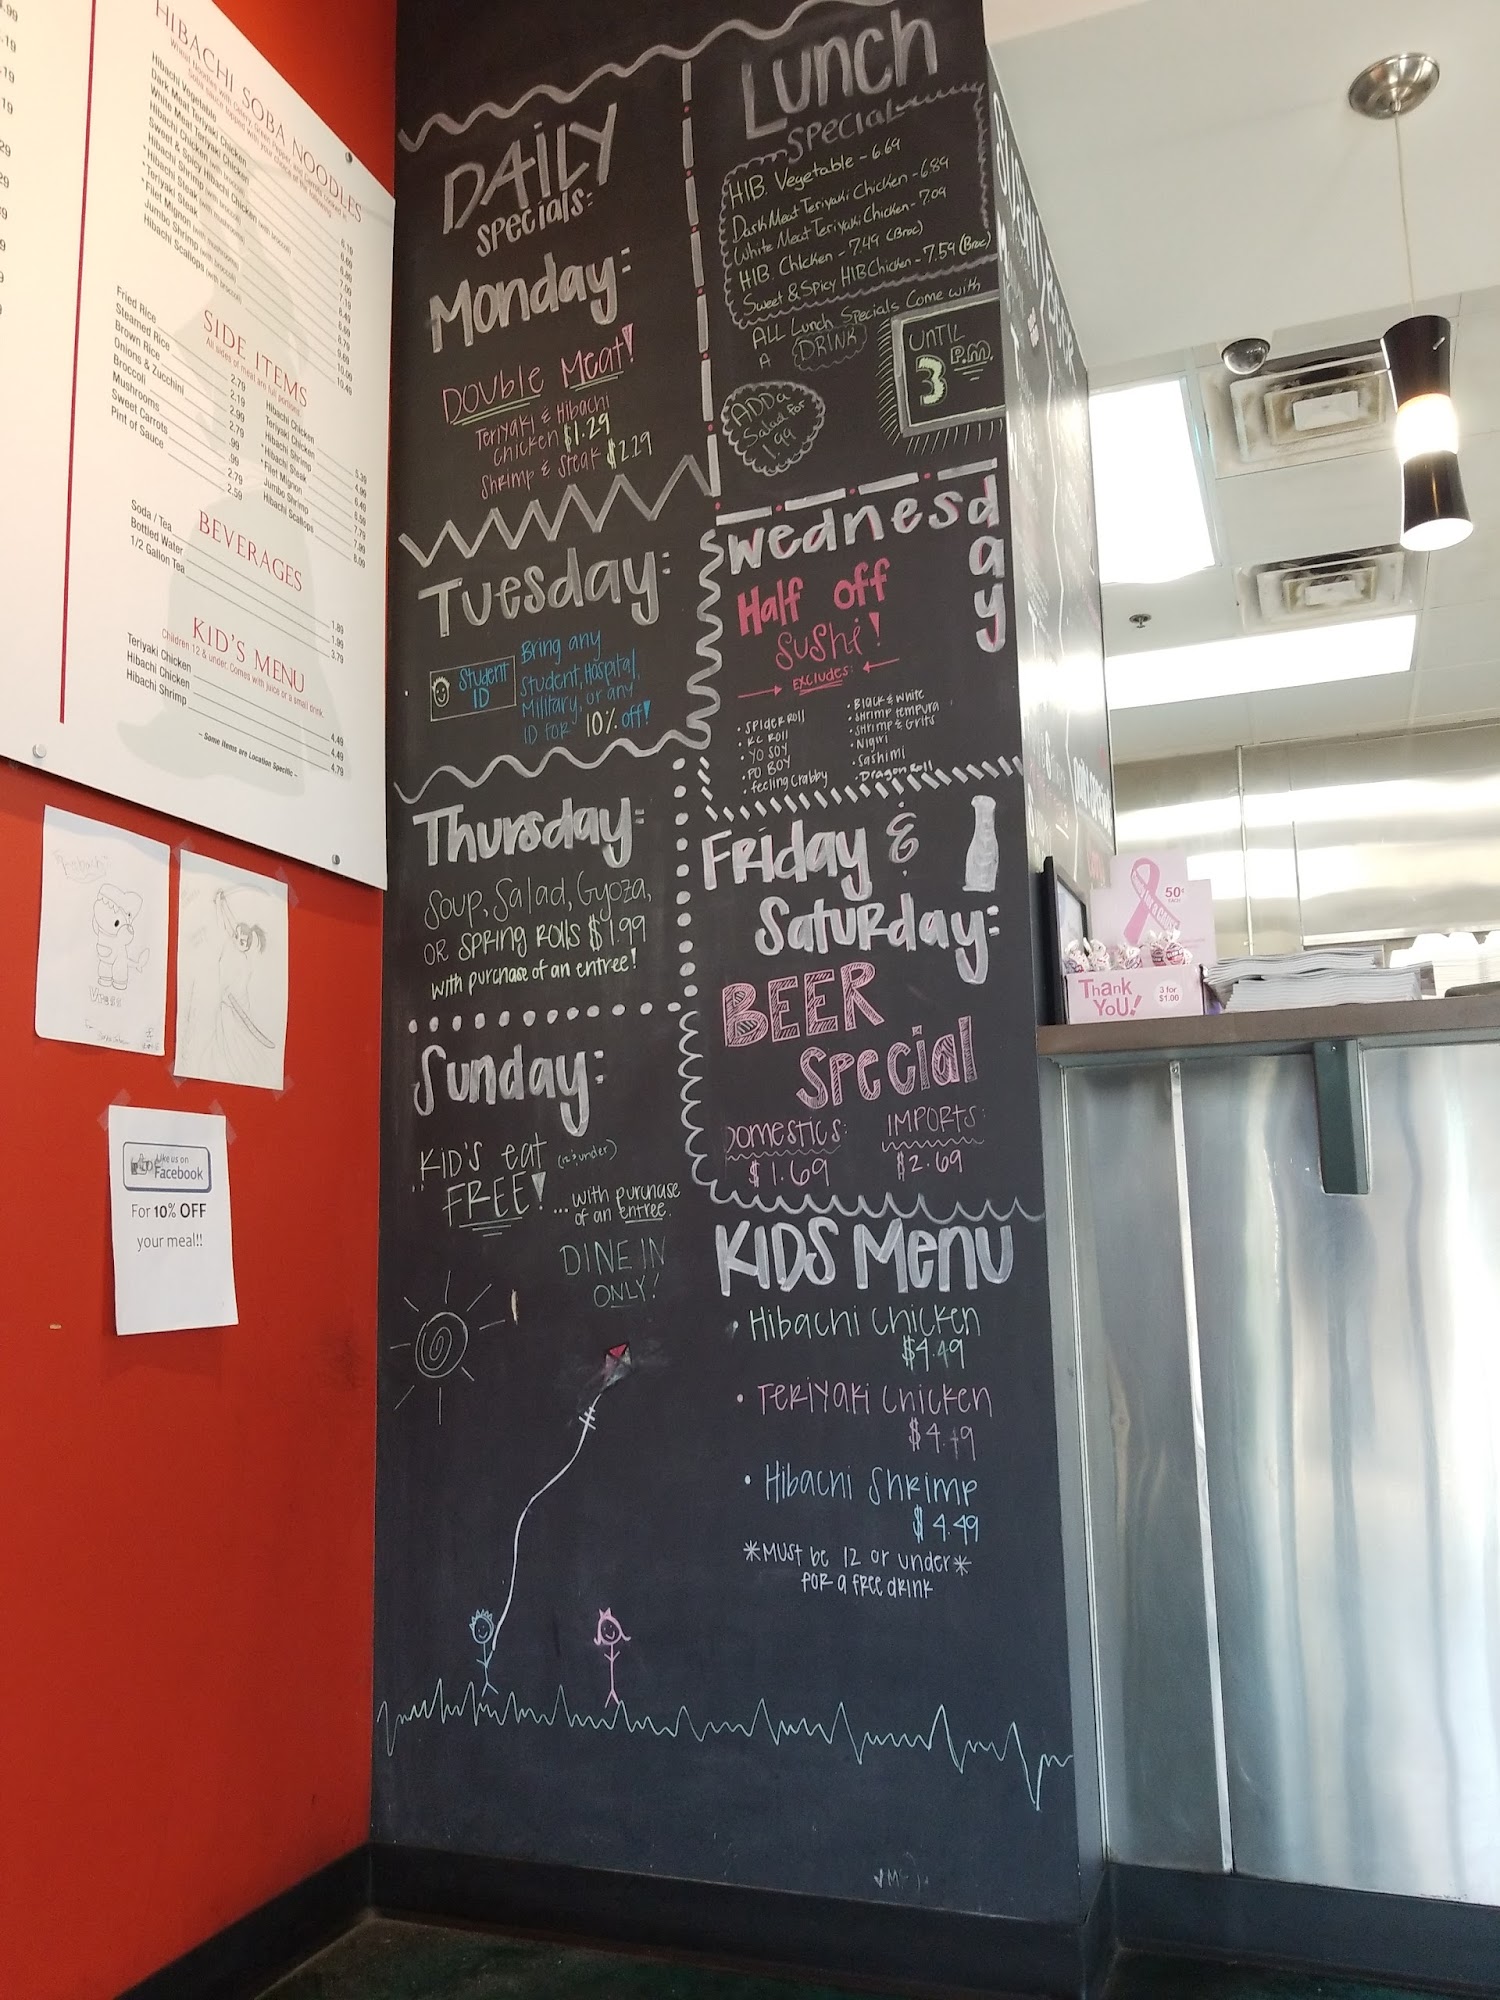 HIBACHI SOBA NOODLES
Hibachi Vegetable
Dark Meat Teriyaki Chicken
White Meat Teriyaki Chicken
6.19
SIDE ITEMS
All sides of meat are full portions.
Fried Rice 2.79
Steamed Rice 2.19
Brown Rice 2.99
Onions & Zucchini 2.79
Broccoli .99
Mushrooms .99
Sweet Carrots 2.79
Pint of Sauce 2.59
Hibachi Chicken 5.39
Teriyaki Chicken 4.99
*Hibachi Shrimp
*Hibachi Steak
*Filet Mignon
Jumbo Shrimp
Hibachi Scallops
BEVERAGES
Soda / Tea 1.89
Bottled Water 1.99
1/2 Gallon Tea 3.79
KID'S MENU
Children 12 & under. Comes with juice or a small drink.
Teriyaki Chicken 4.49
Hibachi Chicken 4.49
Hibachi Shrimp 4.79
~ Some Items are Location Specific ~
Like us on
Facebook
For 10% OFF
your meal!!
DAILY
SPECIALS:
Monday:
DOUBLE Meat!
Teriyaki & Hibachi
Chicken $1.29
Shrimp & Steak $2.29
Tuesday:
Student
ID
Bring any
Student, Hospital,
Military, or any
ID for 10% off!
Thursday:
Soup, Salad, Gyoza,
OR SPRING ROLLS $1.99
with purchase of an entree!
Sunday:
KID'S eat (12 & under)
FREE! ...with purchase
of an entree.
DINE IN
ONLY!
Lunch
Special
HIB. Vegetable - 6.69
Dark Meat Teriyaki Chicken - 6.89
White Meat Teriyaki Chicken - 7.09
HIB. Chicken - 7.49 (Broc)
Sweet & Spicy HIB Chicken - 7.59 (Broc)
ALL Lunch Specials Come with
A DRINK
UNTIL
3 P.M.
ADD a
Salad For
1.99
Wednesday
Half off
Sushi!
EXCLUDES:
• SPIDER ROLL
• KC ROLL
• YO SOY
• PO BOY
• feeling Crabby
• Black & White
• Shrimp Tempura
• Shrimp & Grits
• Nigiri
• Sashimi
• Dragon Roll
FRiday &
Saturday:
BEER
Special
DOMESTICS:
$1.69
IMPORTS:
$2.69
KIDS Menu
• Hibachi Chicken
$4.49
• Teriyaki Chicken
$4.49
• Hibachi Shrimp
$4.49
*Must be 12 or under*
for a free drink
50¢
EACH
Thank
You!
3 for
$1.00